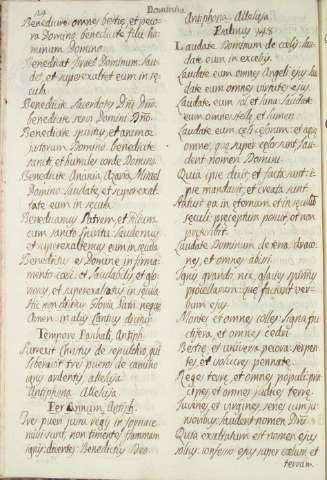 24
Dominica
Benedicite omnes bestiæ, et peco-
ra Domino, benedicite filii ho-
minum Domino.
Benedicat Israel Dominum: lau-
det, et superexaltet eum in sæ-
cula.
Benedicite sacerdotes Dñi Dño:
benedicite servi Domini Dño.
Benedicite spiritus, et animæ
justorum Domino, benedicite
sancti, et humiles corde Domino.
Benedicite Anania, Azaria, Misael
Domino: laudate, et superexal-
tate eum in sæcula.
Benedicamus Patrem, et Filium
cum sancto Spiritu: laudemus,
et superexaltemus eum in sæcula
Benedictus es Domine in firma-
mento cœli: et laudabilis, et glo-
riosus, et superexaltatus in sæcula.
Hic non dicitur Gloria Patri, neque
Amen
Tempore Paschali, Antiph.
Surrexit Christus de sepulchro, qui
liberavit tres pueros de camino
ignis ardentis alleluja.
Antiphona Alleluja
Per Annum, Antiph.
Tres pueri jussu regis in fornace
missi sunt, non timentes flammam
ignis, dicentes: Benedictus Deo
Antiphona Alleluja
Psalmus 148
Laudate Dominum de cœlis: lau-
date eum in excelsis.
Laudate eum omnes Angeli ejus: lau-
date eum omnes virtutes ejus.
Laudate eum sol, et luna: laudate
eum omnes stellæ, et lumen.
Laudate eum cœli cœlorum: et aquæ
omnes, quæ super cœlos sunt, lau-
dent nomen Domini.
Quia ipse dixit, et facta sunt: i-
pse mandavit, et creata sunt.
Statuit ea in eternum, et in sæculũ
sæculi: præceptum posuit, et non
præteribit.
Laudate Dominum de terra, draco-
nes, et omnes abissi.
Ignis, grando, nix, glacies, spiritus
procellarum: quæ faciunt ver-
bum ejus.
Montes, et omnes colles: ligna fru-
ctifera, et omnes cedri.
Bestiæ, et universa pecora: serpen-
tes, et volucres pennatæ.
Reges terræ, et omnes populi: prin-
cipes, et omnes judices terræ.
Juvenes, et virgines, senes cum ju-
nioribus, laudent nomen Dñi:
Quia exaltatum est nomen ejus
solius: confessio ejus super cœlum, et
terram.